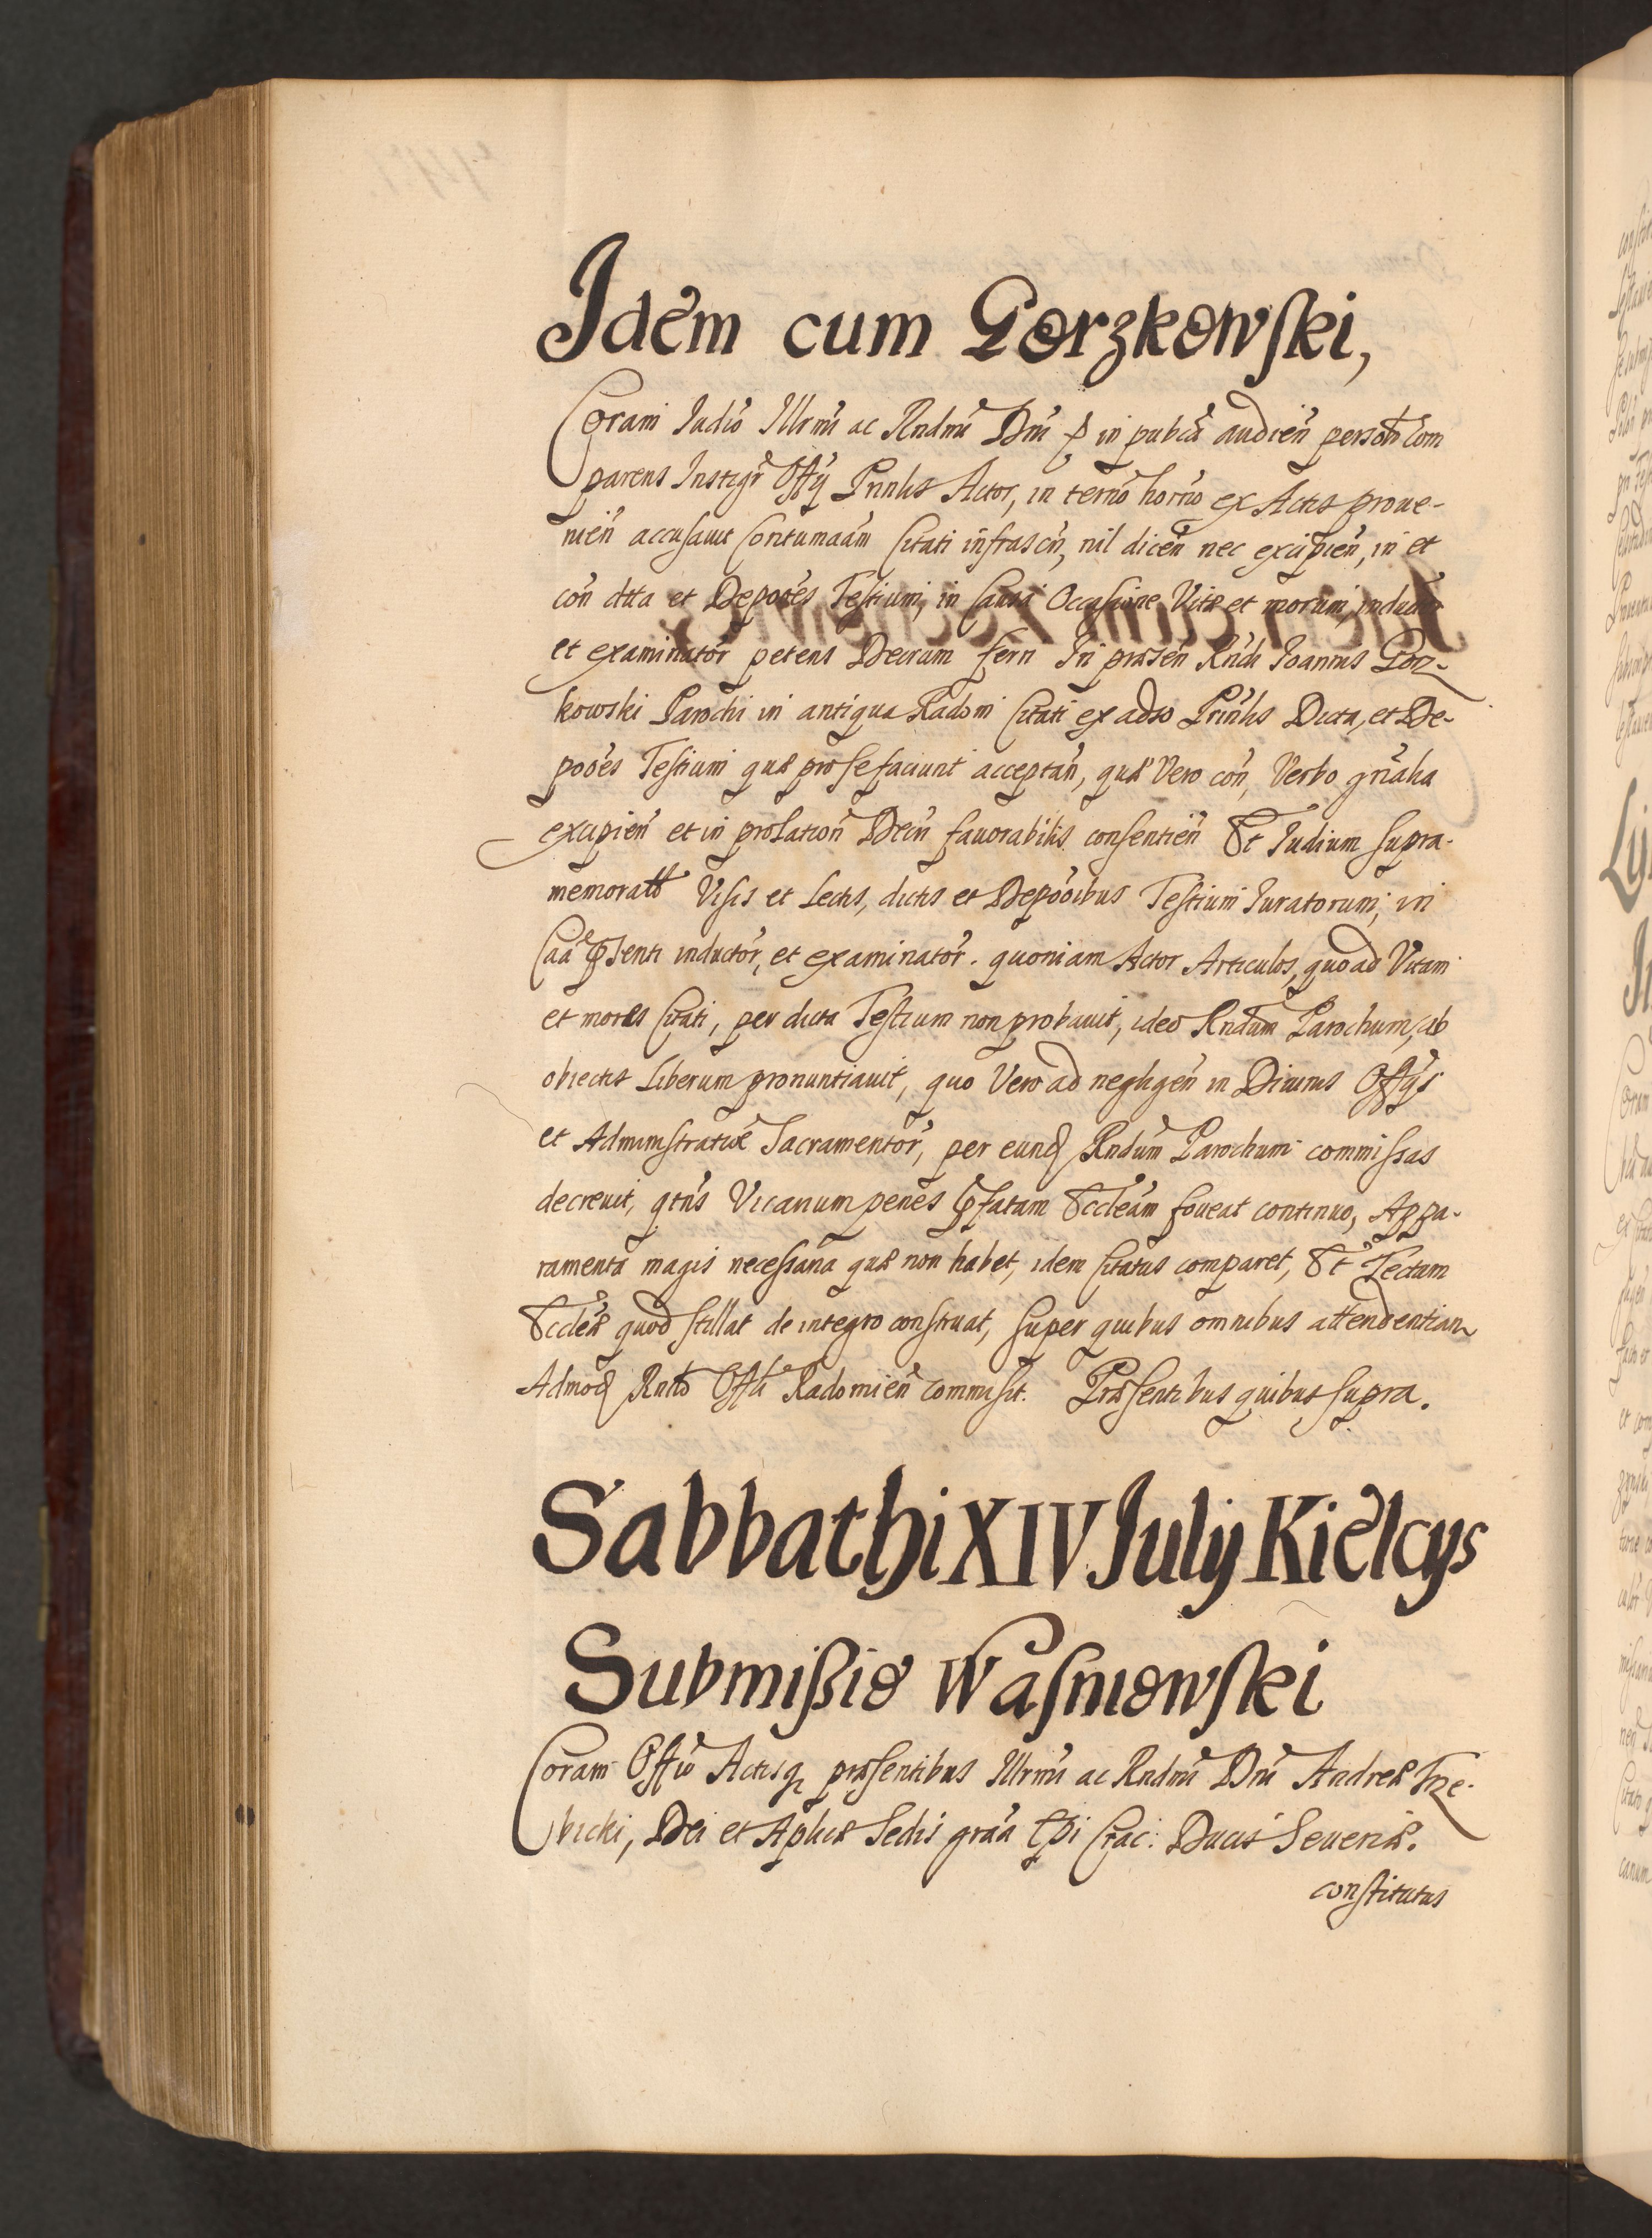 Idem cum Gorzkowski,
Coram Iudio Illrmi ac Rndmi Dni p in publca audien personl com
parens Instigr Offy Prinlis Actor, in termo horno ex Actis proue-
nien accusauit Contumaam Citati infrascri, nil dicen nec excipien, in et
con dcta et Deposes Testium, in Causa Occasione Vitæ et morum, inductor
et examinator petens Decrum ferri In præsen Rndi Ioannis Gorz-
kowski Parochi in antiqua Radom Citati ex adso Prinlis Dicta, et De-
pooes Testium quæ pro se faciunt acceptan, quæ Vero con, Verbo gnalia
excipien et in prolation Decri fauorabilis consentien Et Iudium supra-
memoratt Visis et Lectis, dictis et Depooibus Testium Iuratorum, in
Caa psenti inductor, et examinator. quoniam Actor Articulos, quo ad Vitam
et mores Citati, per dicta Testium non probauit, ideo Rndum Parochum, ab
obiectis Liberum pronuntiauit, quo Vero ad negligen in Diuinis Offys
et Administratioe Sacramentor, per eund Rndum Parochum commissas
decreuit, qtns Vicarium penes pfatam Eccleam foueat continuo, Appa-
ramenta magis necessaria quæ non habet, idem Citatus comparet, Et Tectum
Eccleæ quod stillat de integro construat, super quibus omnibus attendentiam
Admod Rndo Offli Radomien commisit. Præsentibus quibus supra.
Sabbathi XIV July Kielcys
Submißio Wasniowski
Coram Offio Actisq præsentibus Illrmi ac Rndmi Dni Andreæ Trze-
bicki, Dei et Aplicæ Sedis graa Epi Crac: Ducis Seueriæ.
constitutus